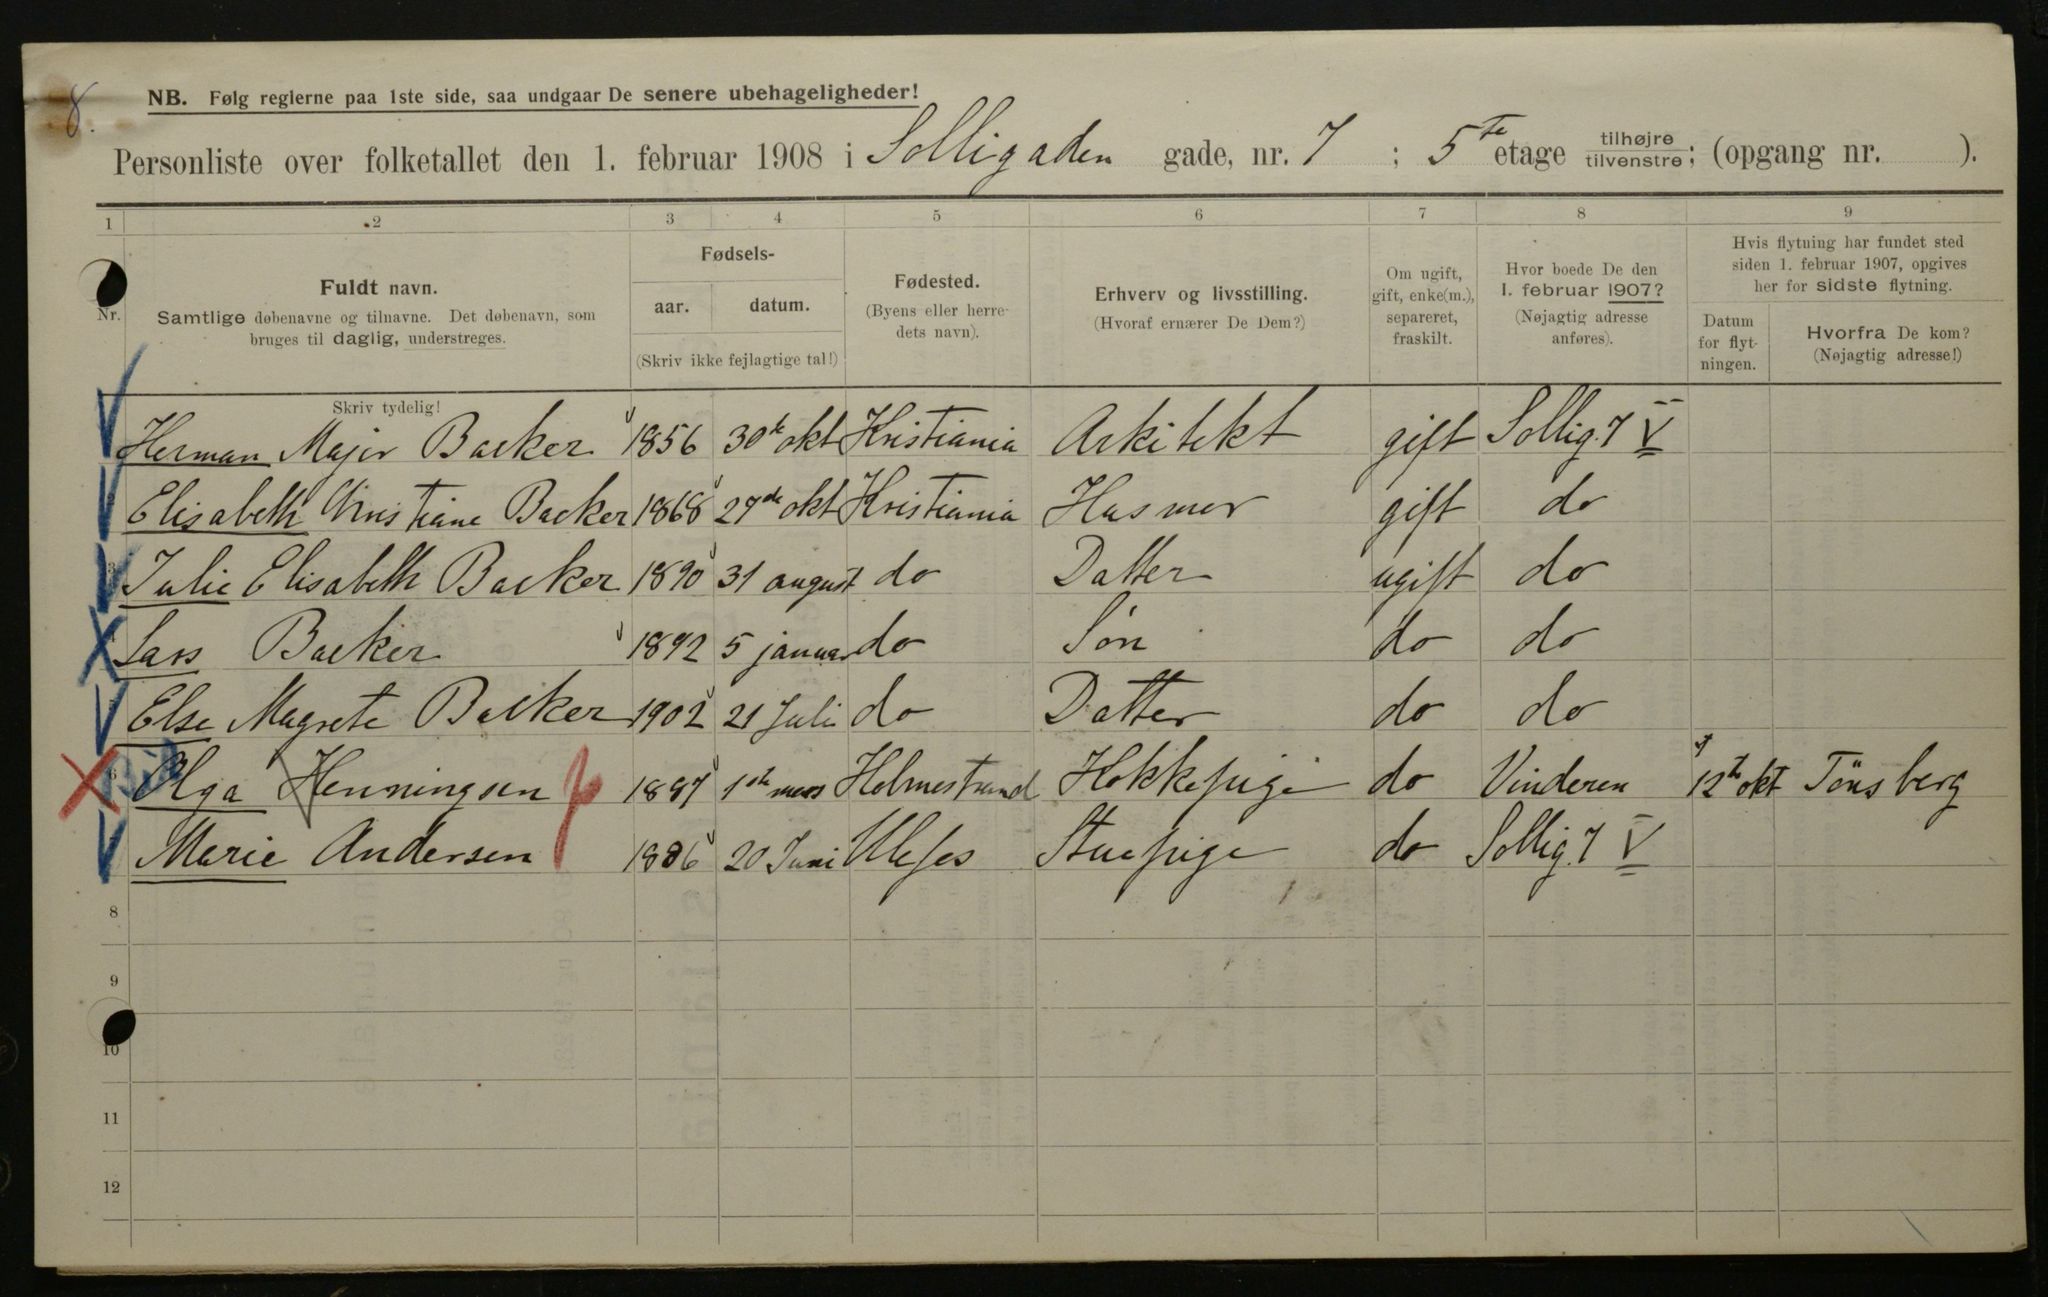 8.
NB. Følg reglerne paa 1ste side, saa undgaar De senere ubehageligheder!
Personliste over folketallet den 1. februar 1908 i Solligaden gade, nr. 7 ; 5te etage tilhøjre/tilvenstre; (opgang nr. ).
1 2 3 4 5 6 7 8 9
Nr.
Fuldt navn.
Samtlige døbenavne og tilnavne. Det døbenavn, som
bruges til daglig, understreges.
Skriv tydelig!
Fødsels-
aar. datum.
(Skriv ikke fejlagtige tal!)
Fødested.
(Byens eller herre-
dets navn).
Erhverv og livsstilling.
(Hvoraf ernærer De Dem?)
Om ugift,
gift, enke(m.),
separeret,
fraskilt.
Hvor boede De den
1. februar 1907?
(Nøjagtig adresse
anføres).
Hvis flytning har fundet sted
siden 1. februar 1907, opgives
her for sidste flytning.
Datum
for flyt-
ningen.
Hvorfra De kom?
(Nøjagtig adresse!)
Herman Major Backer 1856 30te okt Kristiania Arkitekt gift Sollig. 7 V
Elisabeth Christiane Backer 1868 27de okt Kristiania Husmor gift do
3 Julie Elisabeth Backer 1890 31 august do Datter ugift do
4 Lars Backer 1892 5 januar do Søn do do
Else Magrete Backer 1902 21 Juli do Datter do do
6 Olga Henningsen 1887 1ste mars Holmestrand Kokkepige do Vinderen 12te okt Tönsberg
Marie Andersen 1886 20 Juni Ulefos Stuepige do Sollig. 7 V
8
9
10
11
12